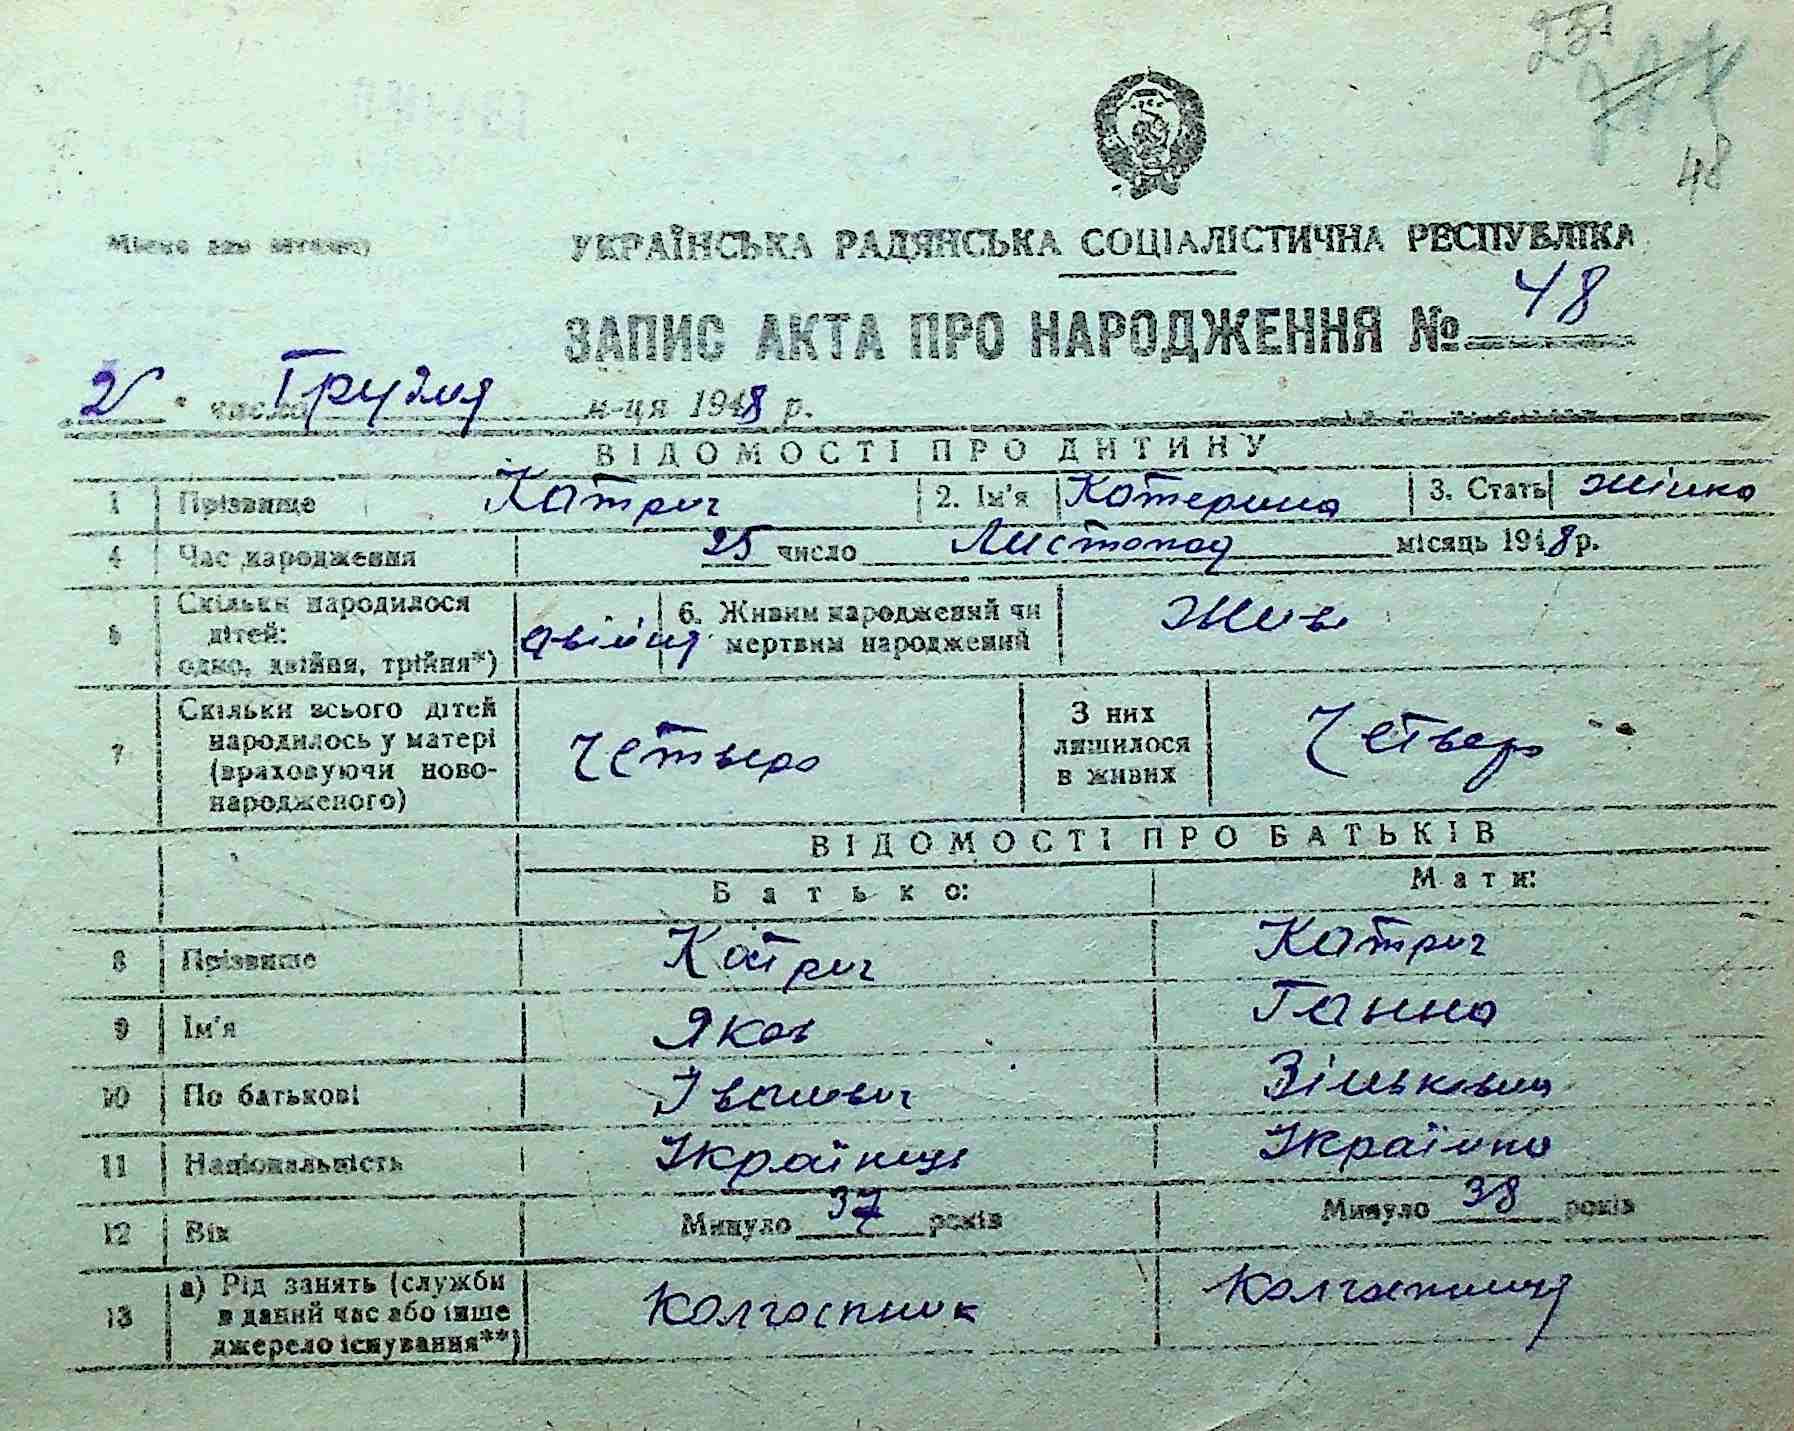 231
48
Місце для штампу
УКРАЇНСЬКА РАДЯНСЬКА СОЦІАЛІСТИЧНА РЕСПУБЛІКА
ЗАПИС АКТА ПРО НАРОДЖЕННЯ № 48
2 " числа Грудня м-ця 1948 р.
ВІДОМОСТІ ПРО ДИТИНУ
1 Прізвище Катрич 2. Ім'я Катерина 3. Стать жінка
4 Час народження 25 число Листопад місяць 1948 р.
5 Скільки народилося дітей: одно, двійня, трійня*) двійня 6. Живим народжений чи мертвим народжений Живі
7 Скільки всього дітей народилось у матері (враховуючи новонародженого) Четверо З них лишилося в живих Четверо
ВІДОМОСТІ ПРО БАТЬКІВ
Батько: Мати:
8 Прізвище Катрич Катрич
9 Ім'я Яков Ганна
10 По батькові Іванович Зіньковна
11 Національність Українець Українка
12 Вік Минуло 37 років Минуло 38 років
13 а) Рід занять (служби в даний час або інше джерело існування**) Колгоспник Колгоспниця